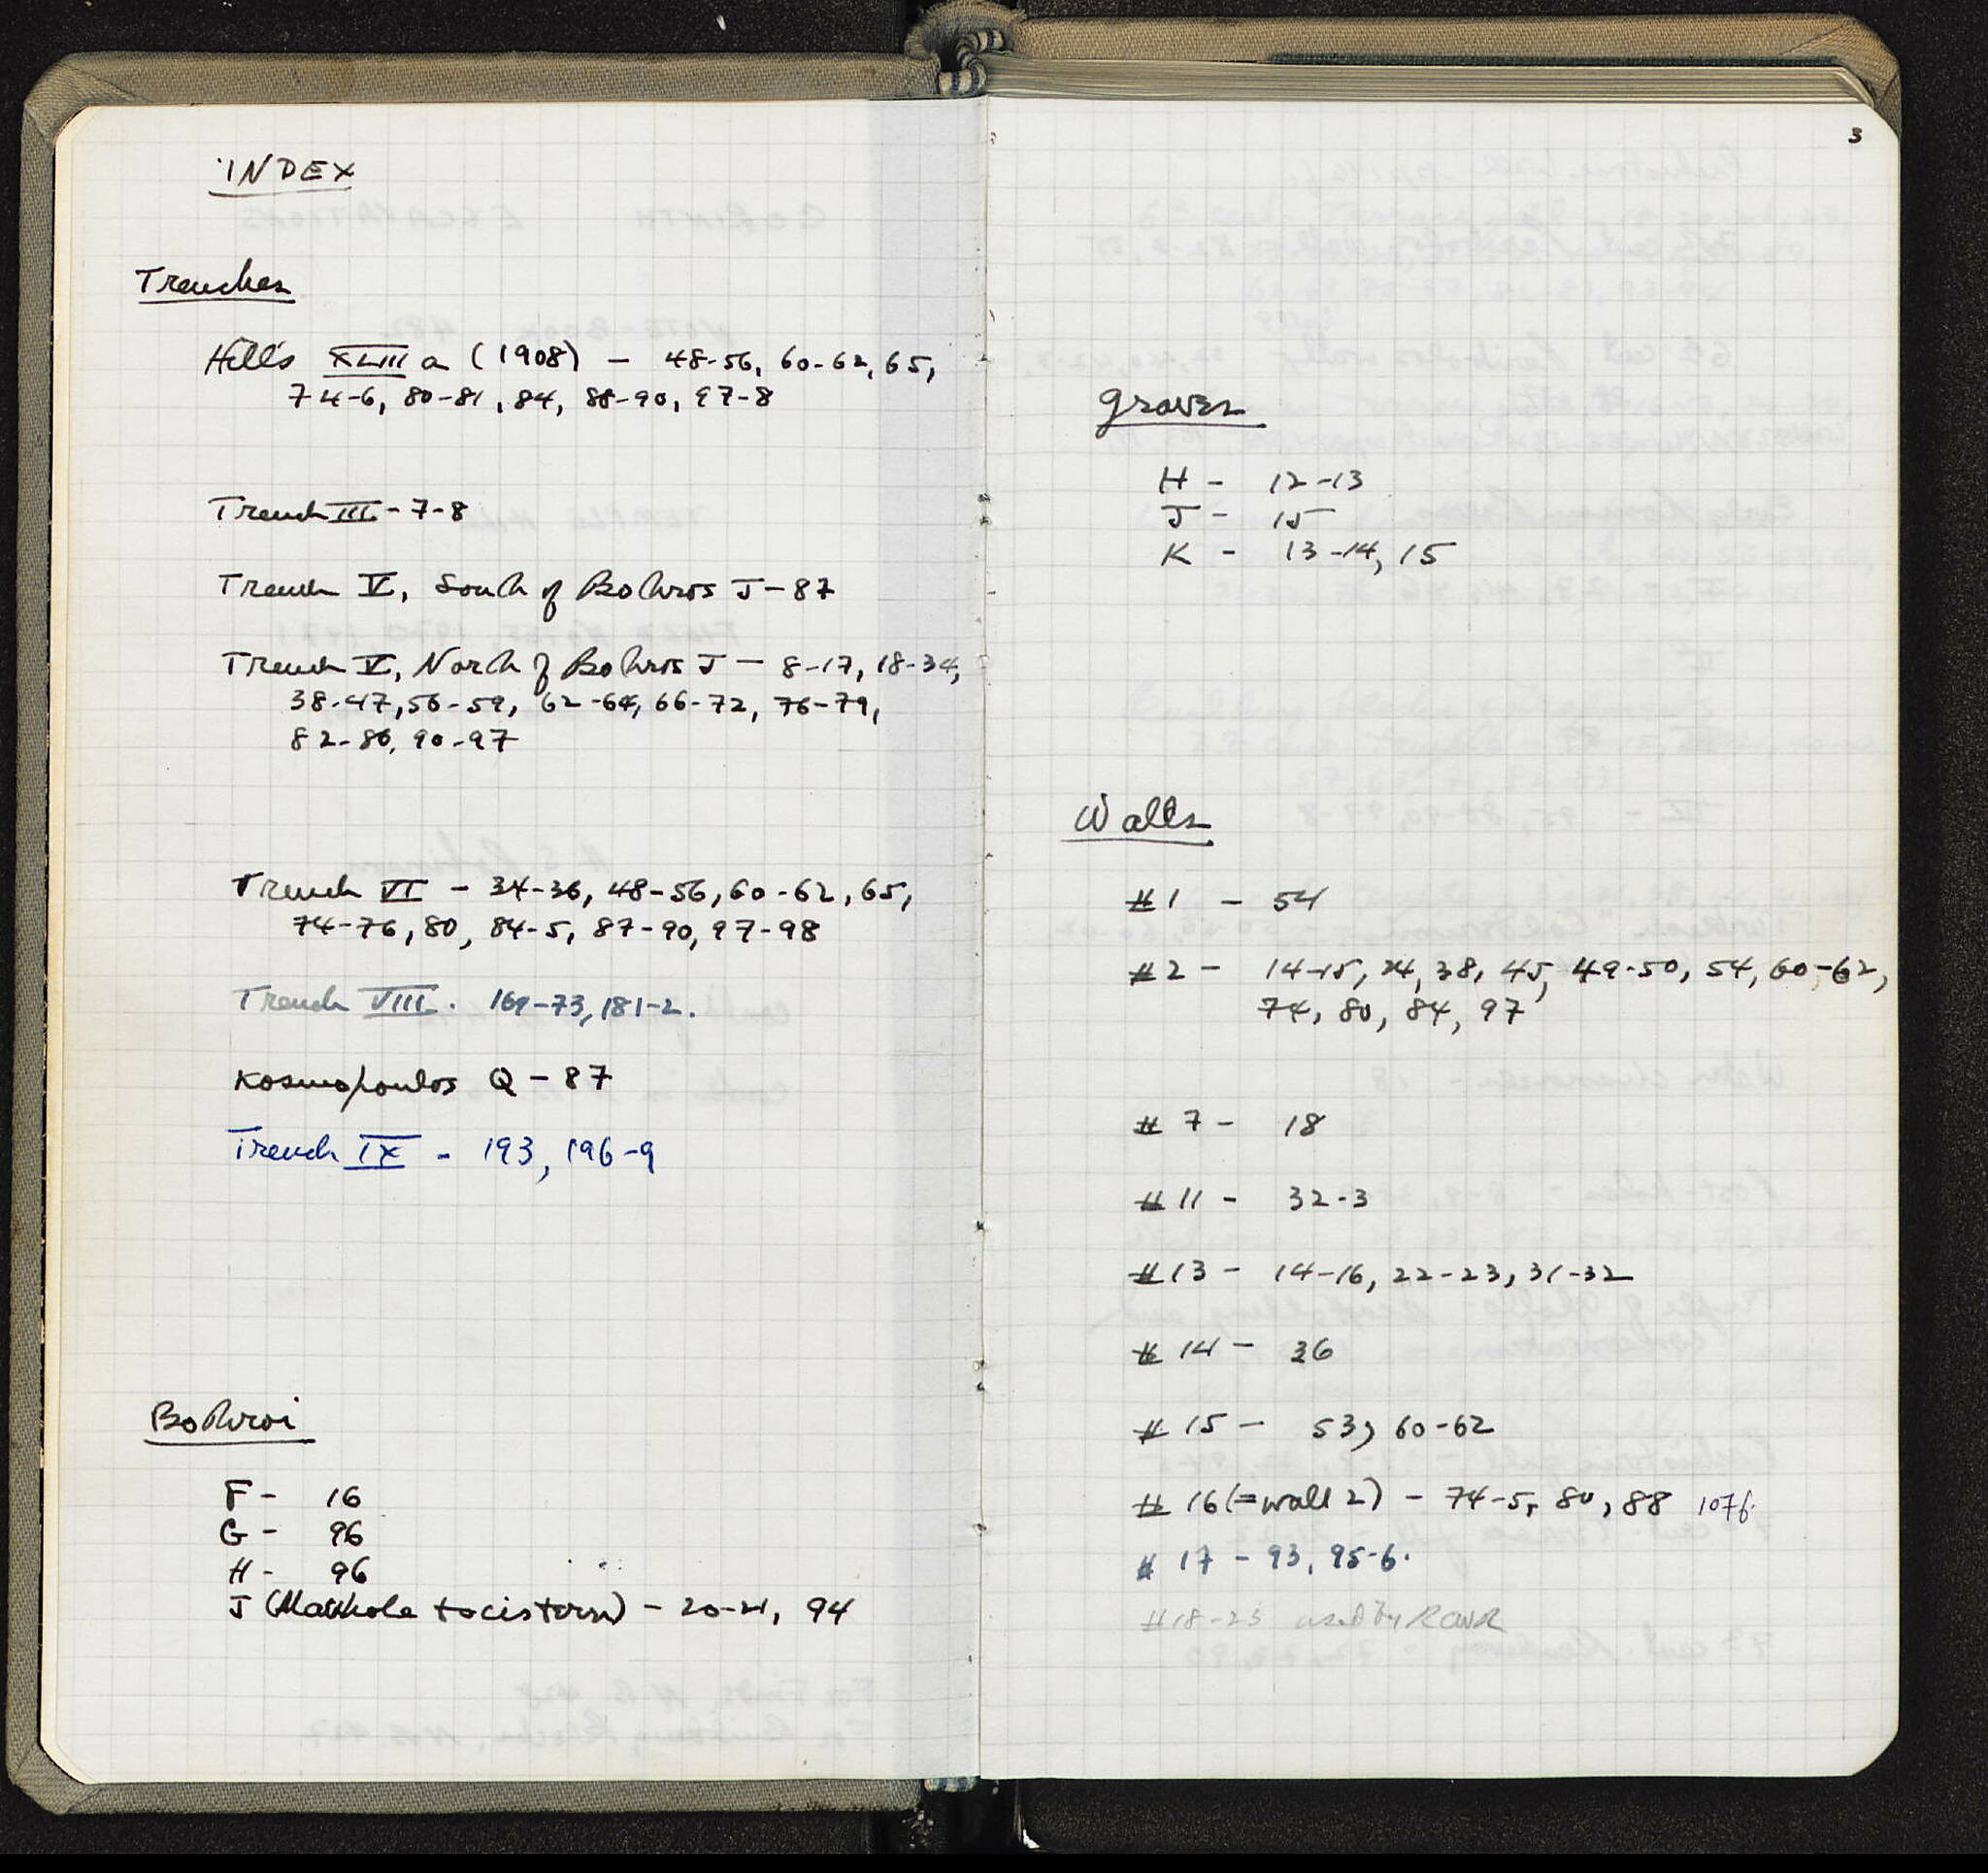 INDEX
Trenches
Hill's XLIII a (1908) – 48-56, 60-62, 65,
74-6, 80-81, 84, 88-90, 97-8
Trench III - 7-8
Trench V, South of Bothros J - 87
Trench V, North of Bothros J – 8-17, 18-34,
38-47, 56-59, 62-64, 66-72, 76-79,
82-86, 90-97
Trench VI – 34-36, 48-56, 60-62, 65,
74-76, 80, 84-5, 87-90, 97-98
Trench VIII. 169-73, 181-2.
Kosmopoulos Q – 87
Trench IX - 193, 196-9
Bothroi
F - 16
G - 96
H - 96
J (Manhole to cistern) – 20-21, 94
3
Graves
H - 12-13
J - 15
K - 13-14, 15
Walls
#1 – 54
#2 – 14-15, 24, 38, 45, 49-50, 54, 60-62,
74, 80, 84, 97
#7 - 18
#11 - 32-3
#13 - 14-16, 22-23, 31-32
#14 – 36
#15 – 53, 60-62
#16 (= wall 2) – 74-5, 80, 88 107f.
#17 - 93, 95-6.
#18-23 used by RCWR